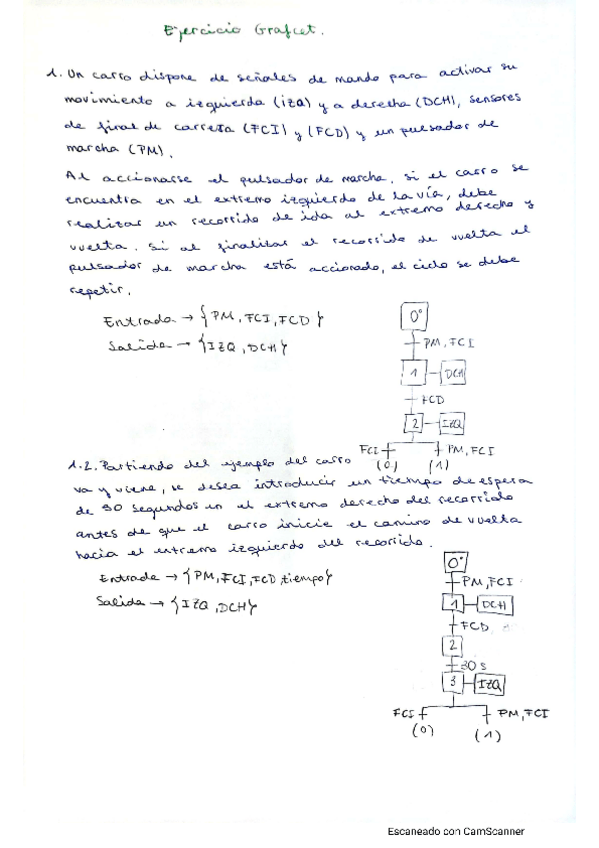 Ejercicio Grafcet.
1. Un carro dispone de señales de mando para activar su
movimiento a izquierda (IZQ) y a derecha (DCH), sensores
de final de carrera (FCI) y (FCD) y un pulsador de
marcha (PM).
Al accionarse el pulsador de marcha, si el carro se
encuentra en el extremo izquierdo de la vía, debe
realizar un recorrido de ida al extremo derecho y
vuelta. Si al finalizar el recorrido de vuelta el
pulsador de marcha está accionado, el ciclo se debe
repetir.
Entrada → {PM, FCI, FCD}
Salida → {IZQ, DCH}
0°
PM, FCI
1 DCH
FCD
2 IZQ
FCI PM, FCI
(0) (1)
1.2. Partiendo del ejemplo del carro
va y viene, se desea introducir un tiempo de espera
de 30 segundos en el extremo derecho del recorrido
antes de que el carro inicie el camino de vuelta
hacia el extremo izquierdo del recorrido.
Entrada → {PM, FCI, FCD, tiempo}
Salida → {IZQ, DCH}
0°
PM, FCI
1 DCH
FCD
2
30 s
3 IZQ
FCI PM, FCI
(0) (1)
Escaneado con CamScanner